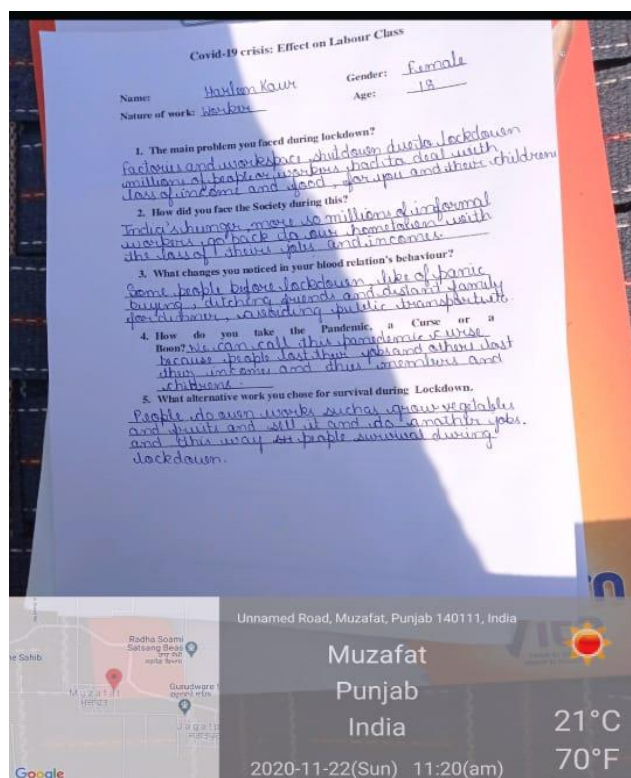 Covid-19 crisis: Effect on Labour Class
Name: Harleen Kaur Gender: Female
Nature of work: Worker Age: 18
1. The main problem you faced during lockdown?
Factories and workspace, shutdown due to lockdown
millions of people or workers had to deal with
loss of income and food, for you and their children
2. How did you face the Society during this?
India's hunger, more so millions of informal
workers, go back to our hometown with
the loss of theirs jobs and incomes.
3. What changes you noticed in your blood relation's behaviour?
Some people before lockdown, like of panic
buying, ditching friends and distant family
for dinner, avoiding public
4. How do you take the Pandemic, a Curse or a
Boon? We can call this pandemic curse
because people lost their jobs and others lost
their incomes and members and
childrens.
5. What alternative work you chose for survival during Lockdown.
People do own works such as grow vegetables
and fruits and sell it and do another jobs.
and this way people survival during
lockdown.
Unnamed Road, Muzafat, Punjab 140111, India
Muzafat
Punjab
India
21°C
70°F
2020-11-22(Sun) 11:20(am)
Radha Soami
Satsang Beas
e Sahib
Muzafat
Gurudware
Jagatp
Google